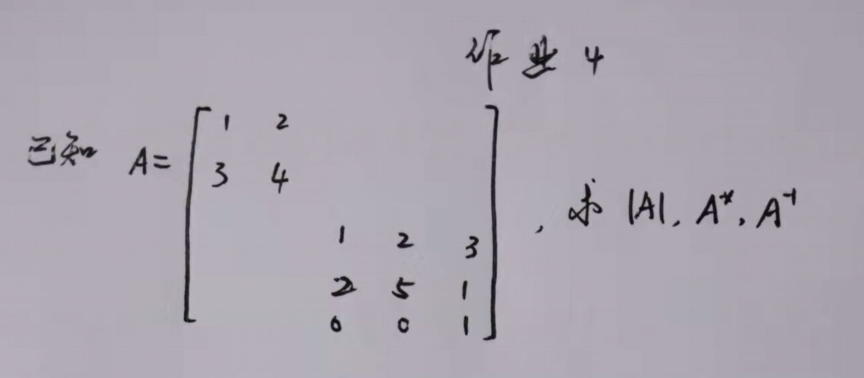 作业4
已知 A= [ 1 2
3 4
1 2 3
2 5 1
0 0 1 ] , 求 |A|, A*, A⁻¹